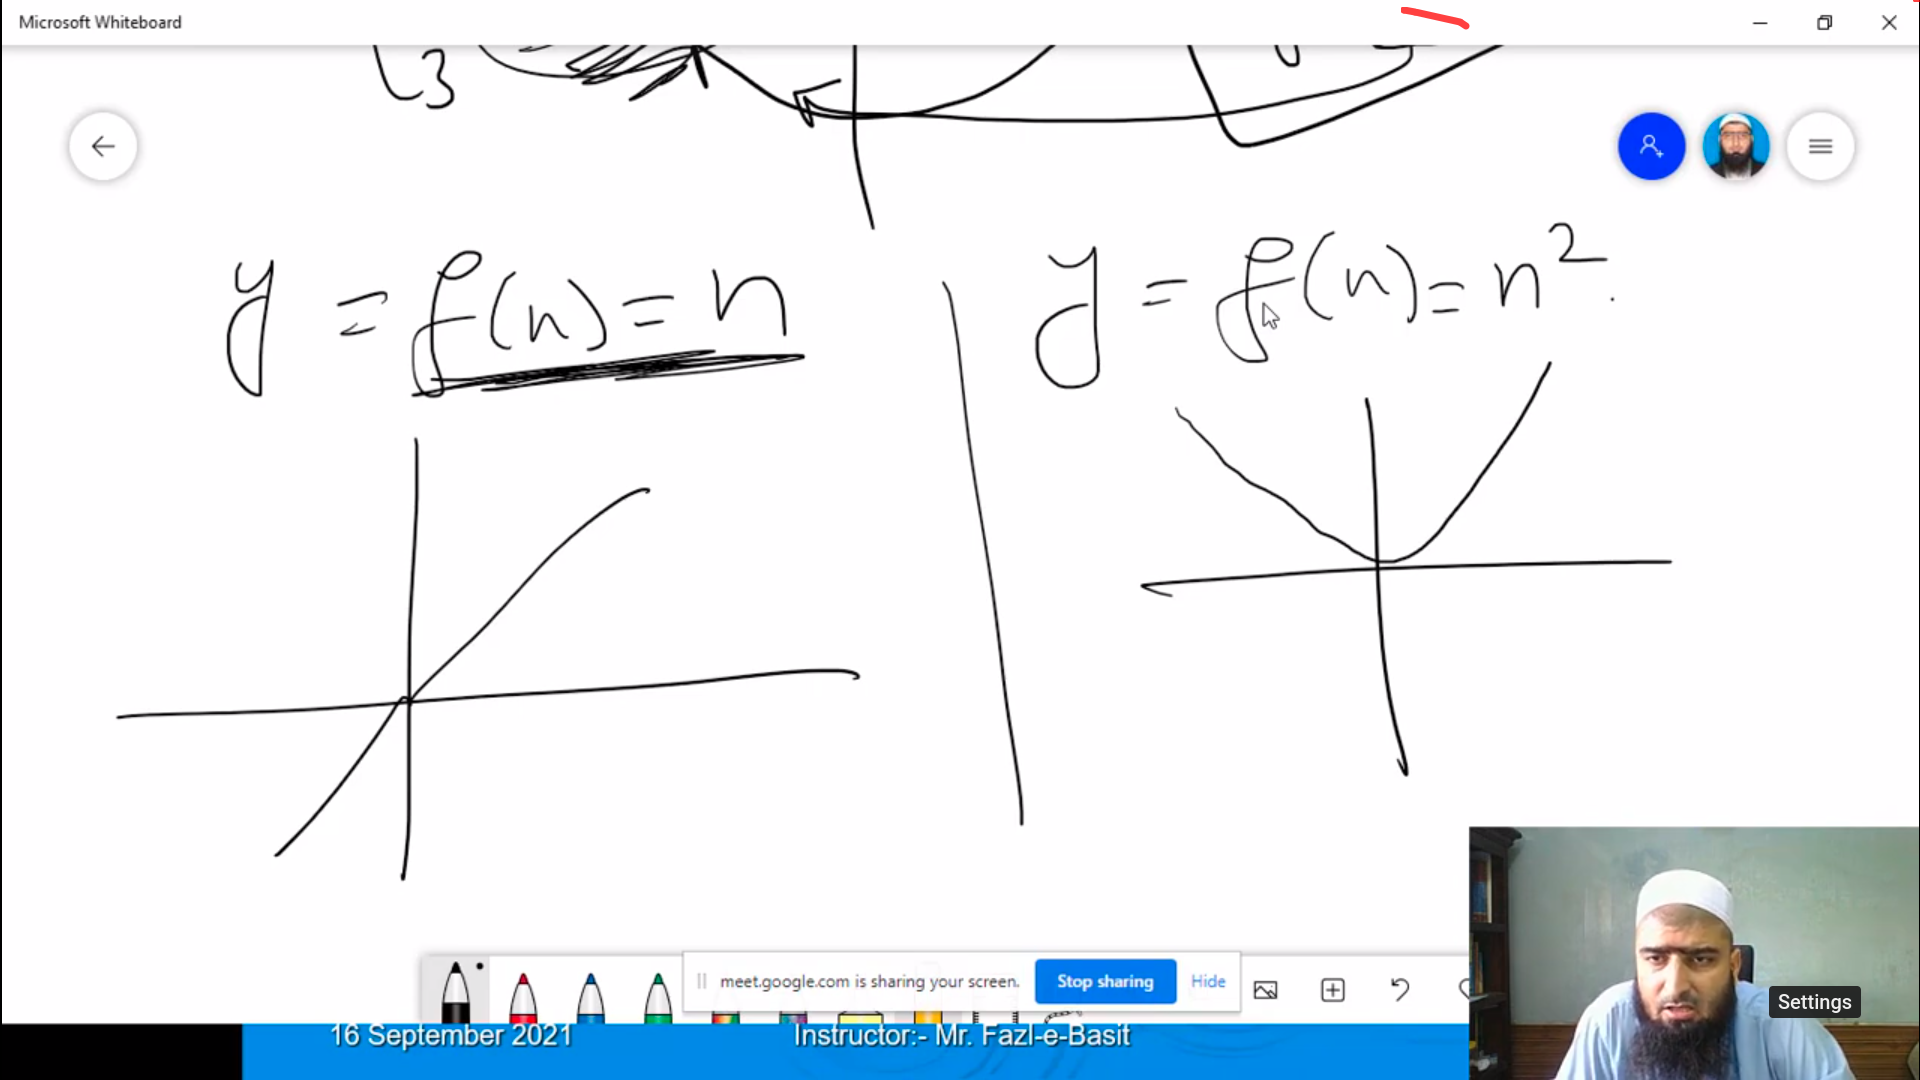 Microsoft Whiteboard
3
y = f(n) = n
y = f(n) = n²
meet.google.com is sharing your screen.
Stop sharing
Hide
Settings
16 September 2021
Instructor:- Mr. Fazl-e-Basit